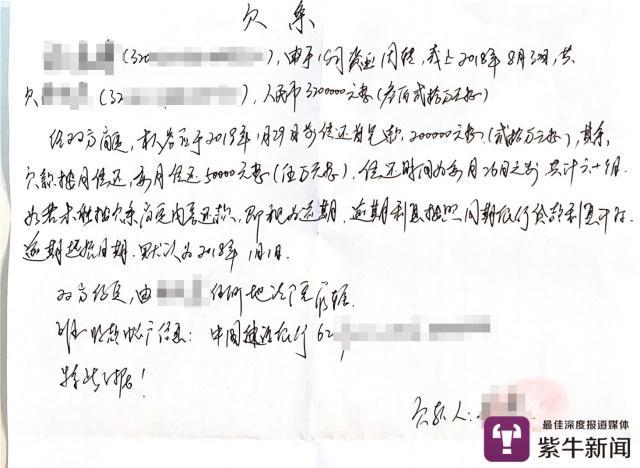 欠条
(320 ),由于公司资金周转,我于2018年8月30日,共
欠 (32 ),人民币3200000元整(叁佰贰拾万元整)
经双方商定,本人应于2019年1月29日前偿还首笔款,200000元整,(贰拾万元整),其余
欠款按月偿还,每月偿还50000元整(伍万元整),偿还时间为每月26日之前 共计六十个月.
如若未能按欠条商定内容还款,即视为逾期.逾期利息按照同期银行贷款利息计算.
逾期起始日期.默认为2018年1月1日.
双方约定,由 任何地法院
收款帐户信息:中国建设银行 62
特此
欠款人:
最佳深度报道媒体
紫牛新闻